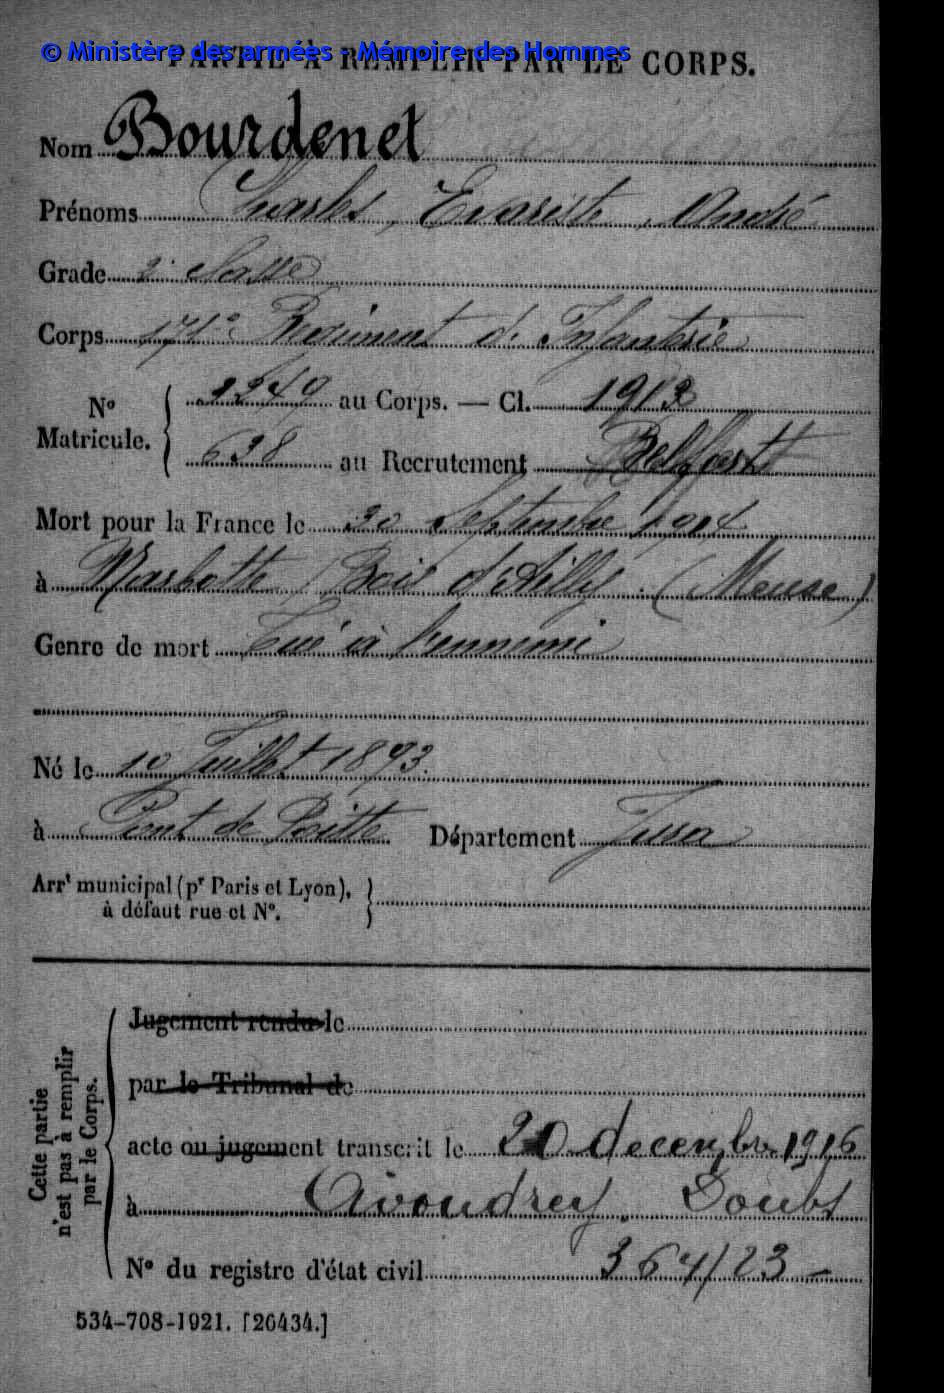 © Ministère des armées - Mémoire des Hommes
PARTIE À REMPLIR PAR LE CORPS.
Nom Bourdenet
Prénoms Charles, Evariste, André
Grade 2e classe
Corps 171e Régiment d'Infanterie
No Matricule. 2249 au Corps. — Cl. 1913
638 au Recrutement Belfort
Mort pour la France le 20 Septembre 1914
à Marbotte Bois d'Ailly (Meuse)
Genre de mort Tué à l'ennemi
Né le 10 Juillet 1893.
à Pont de Poitte Département Jura
Arrt municipal (pr Paris et Lyon), à défaut rue et No.
Cette partie n'est pas à remplir par le Corps.
Jugement rendu le
par le Tribunal de
acte ou jugement transcrit le 20 decembre 1916
à Avoudrey. Doubs
No du registre d'état civil 364/23 -
534-708-1921. [26434.]